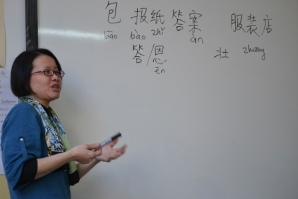 包 报纸 答案 服装店
bāo bào zhǐ àn
答/恩 壮 zhuàng
ēn